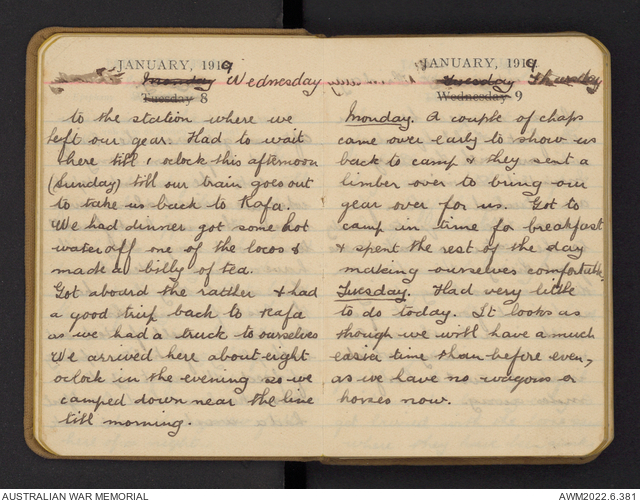 JANUARY, 1919
Monday Wednesday
Tuesday 8
to the station where we
left our gear. Had to wait
here till 1 oclock this afternoon
(Sunday) till our train goes out
to take us back to Rafa.
We had dinner got some hot
water off one of the locos &
made a billy of tea.
Got aboard the rattler & had
a good trip back to Rafa
as we had a truck to ourselves
We arrived here about eight
oclock in the evening so we
camped down near the line
till morning.
JANUARY, 1919
Tuesday Thursday
Wednesday 9
Monday. A couple of chaps
came over early to show us
back to camp & they sent a
limber over to bring our
gear over for us. Got to
camp in time for breakfast
& spent the rest of the day
making ourselves comfortable.
Tuesday. Had very little
to do today. It looks as
though we will have a much
easier time than before even,
as we have no wagons or
horses now.
AUSTRALIAN WAR MEMORIAL
AWM2022.6.381